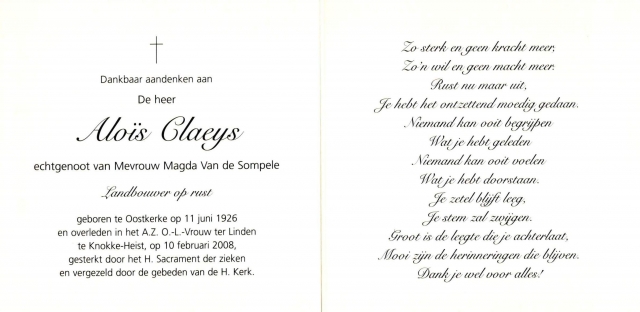 Dankbaar aandenken aan
De heer
Aloïs Claeys
echtgenoot van Mevrouw Magda Van de Sompele
Landbouwer op rust
geboren te Oostkerke op 11 juni 1926
en overleden in het A.Z. O.-L.-Vrouw ter Linden
te Knokke-Heist, op 10 februari 2008,
gesterkt door het H. Sacrament der zieken
en vergezeld door de gebeden van de H. Kerk.
Zo sterk en geen kracht meer,
Zo'n wil en geen macht meer.
Rust nu maar uit,
Je hebt het ontzettend moedig gedaan.
Niemand kan ooit begrijpen
Wat je hebt geleden
Niemand kan ooit voelen
Wat je hebt doorstaan.
Je zetel blijft leeg,
Je stem zal zwijgen.
Groot is de leegte die je achterlaat,
Mooi zijn de herinneringen die blijven.
Dank je wel voor alles!